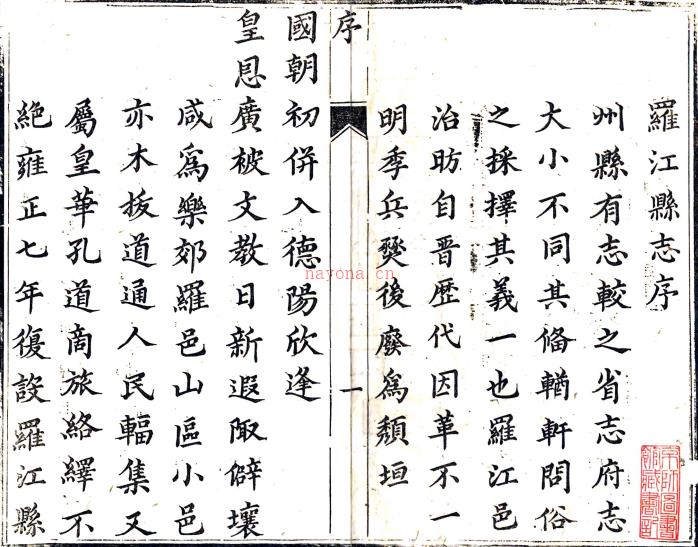 羅江縣志序
州縣有志較之省志府志
大小不同其俻輶軒問俗
之採擇其義一也羅江邑
治昉自晋歴代因革不一
明季兵燹後廢爲頽垣
序
一
國朝初併入德陽欣逢
皇恩廣被文教日新遐陬僻壤
咸爲樂郊羅邑山區小邑
亦木拔道通人民輻集又
屬皇華孔道商旅絡繹不
絶雍正七年復設羅江縣
nayona.cn